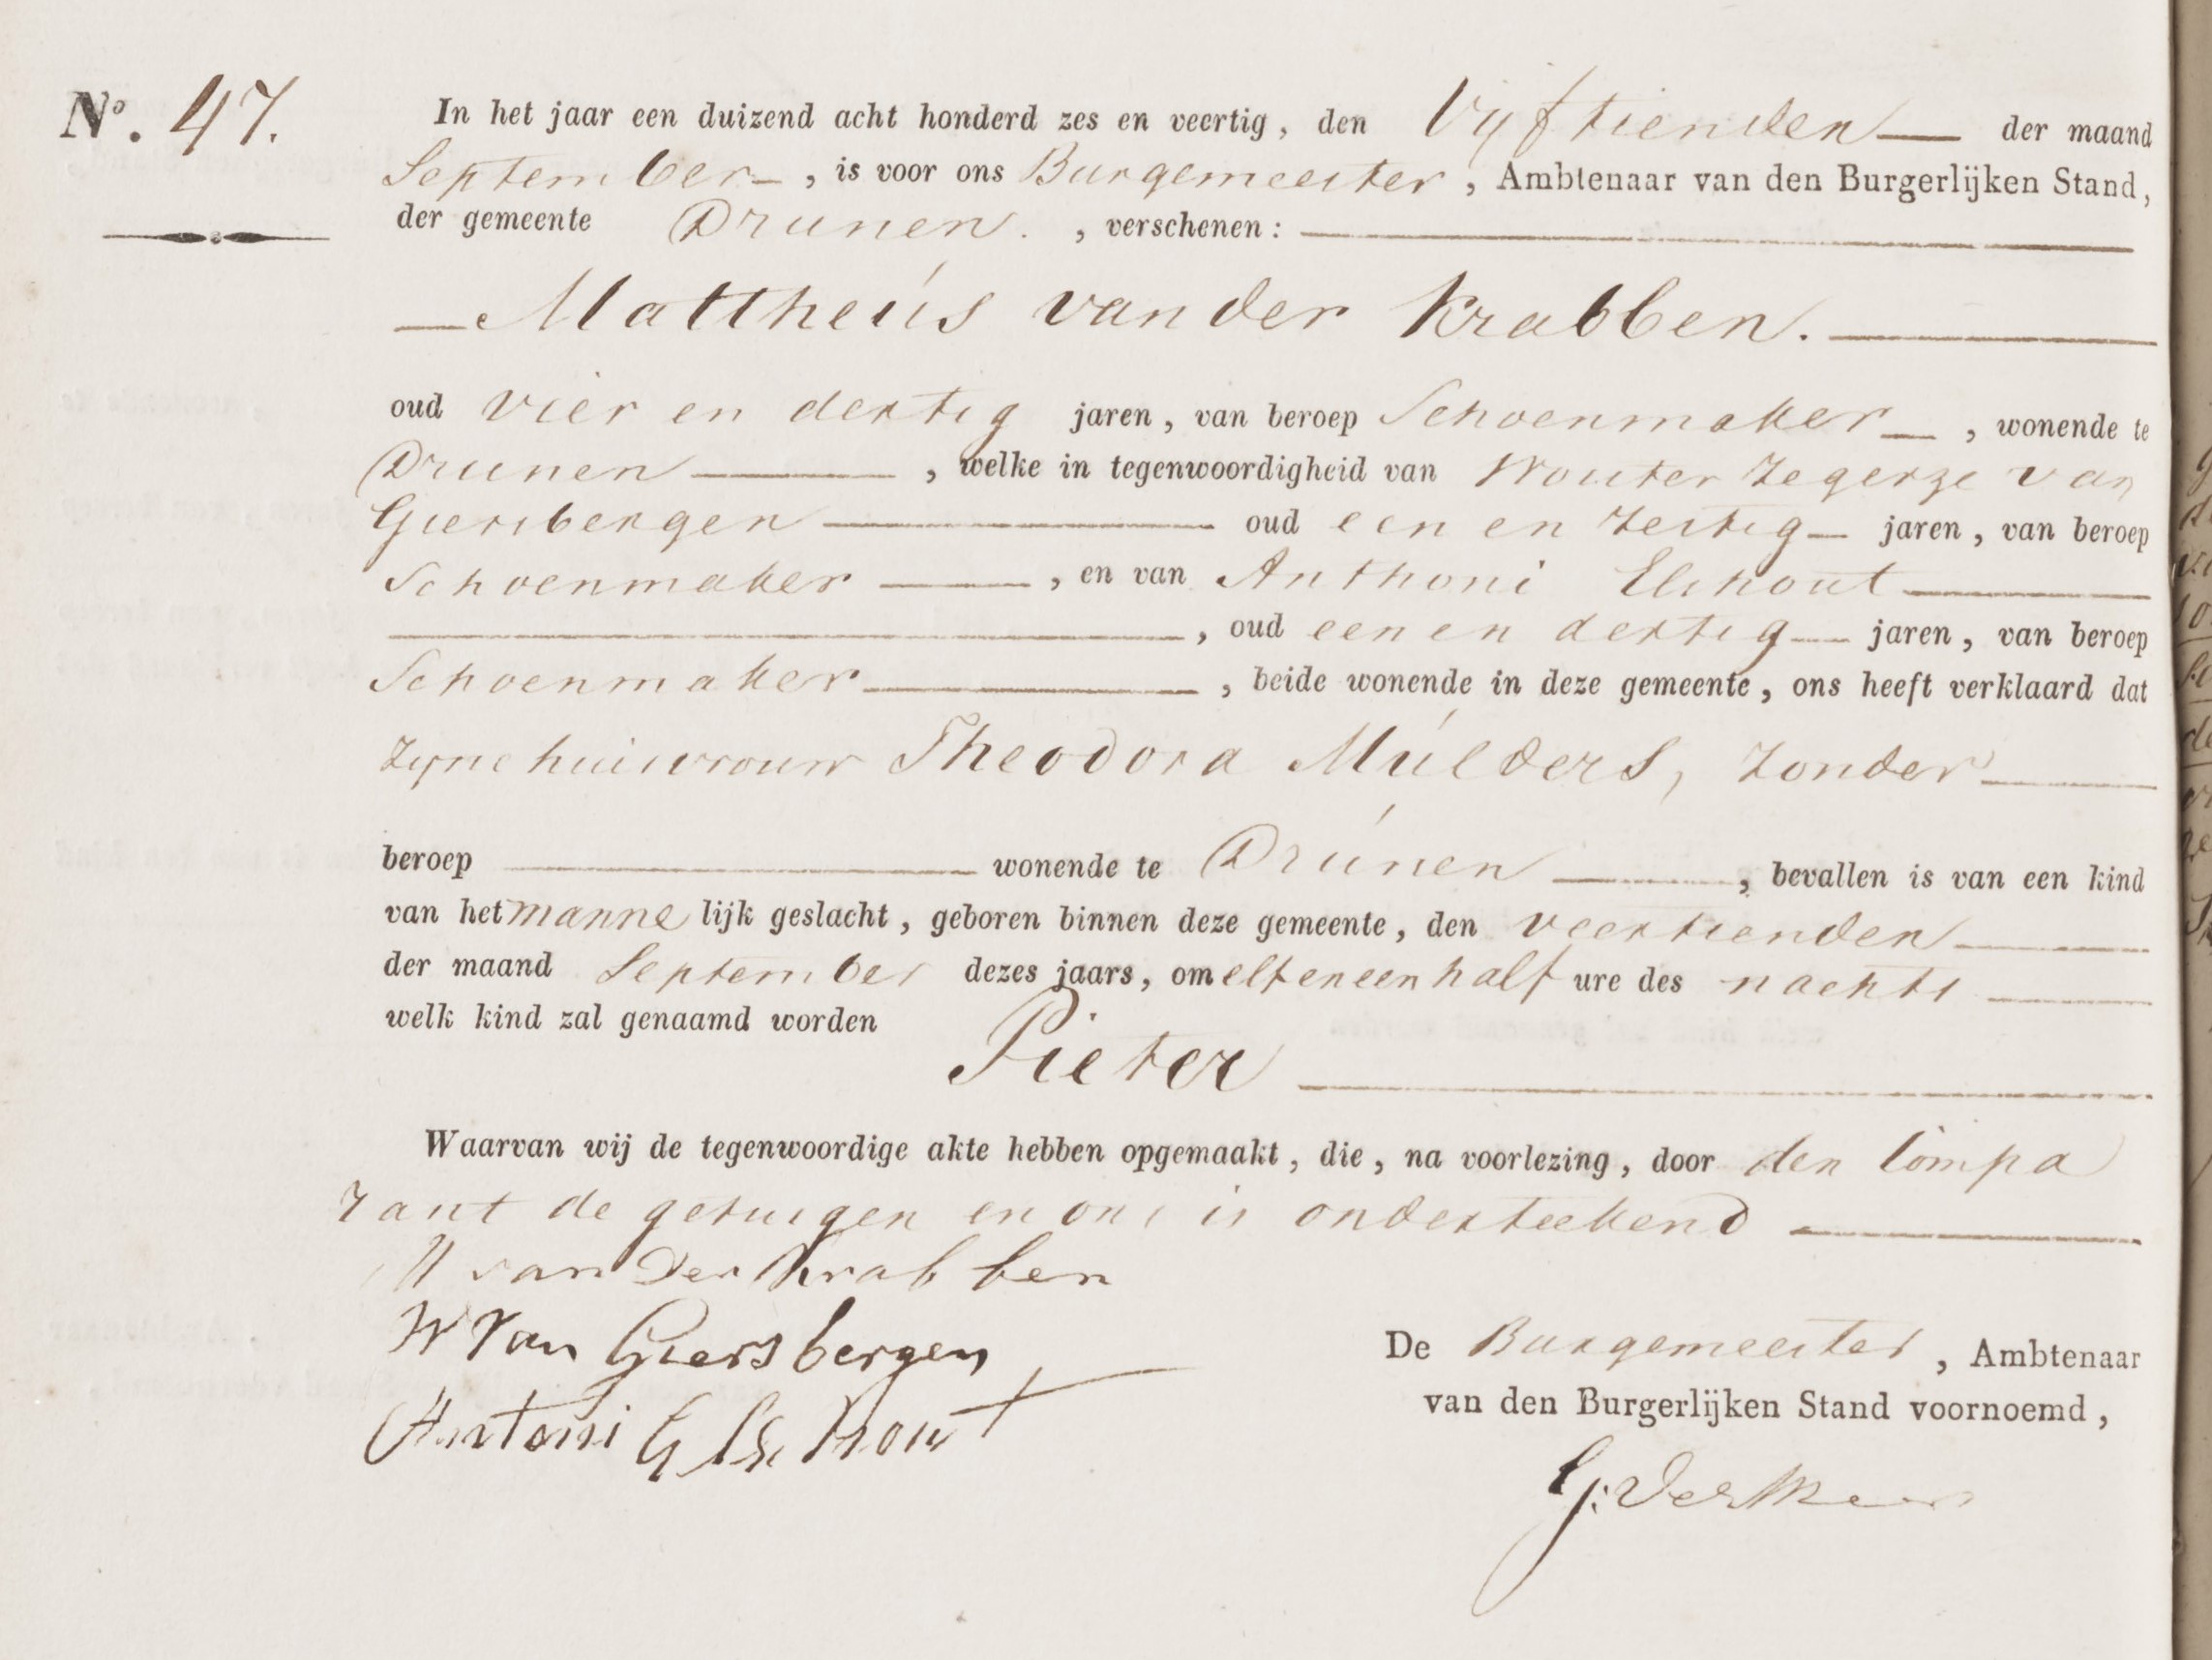 N.º 47.
In het jaar een duizend acht honderd zes en veertig, den Vyftienden der maand
September, is voor ons Burgemeester, Ambtenaar van den Burgerlijken Stand,
der gemeente Drunen., verschenen:
Mattheus van der Krabben.
oud vier en dertig jaren, van beroep Schoenmaker, wonende te
Drunen, welke in tegenwoordigheid van Wouter Zegerze van
Giersbergen oud een en zestig jaren, van beroep
Schoenmaker, en van Anthoni Elshout
, oud een en dertig jaren, van beroep
Schoenmaker, beide wonende in deze gemeente, ons heeft verklaard dat
zyne huisvrouw Theodora Mulders, zonder
beroep wonende te Drunen, bevallen is van een kind
van het mannelijk geslacht, geboren binnen deze gemeente, den veertienden
der maand September dezes jaars, om elf en een half ure des nachts
welk kind zal genaamd worden
Pieter
Waarvan wij de tegenwoordige akte hebben opgemaakt, die, na voorlezing, door den Compa
rant de getuigen en ons is onderteekend
M van der Krabben
W Van Giersbergen
De Burgemeester, Ambtenaar
Antoni Elshout
van den Burgerlijken Stand voornoemd,